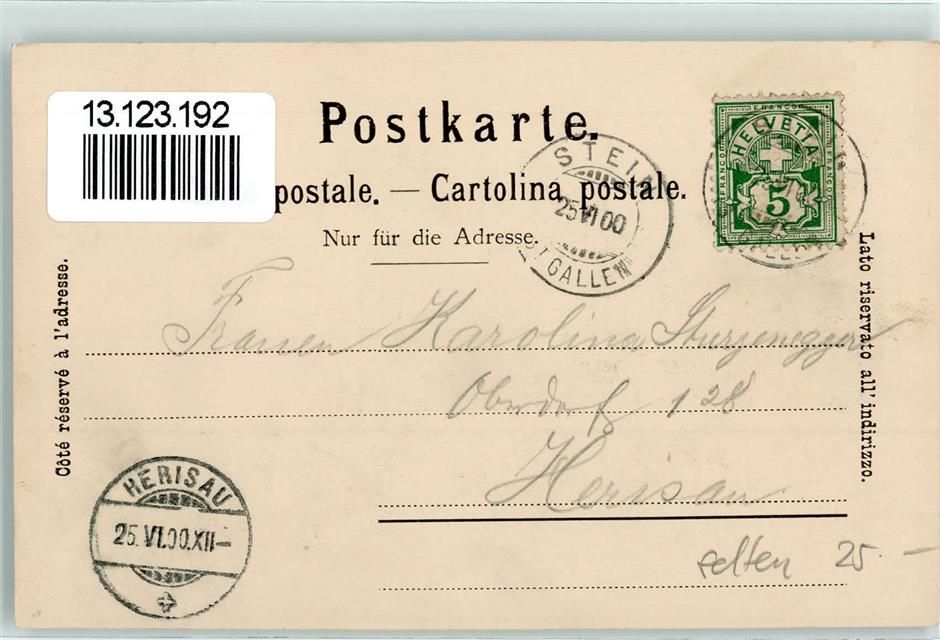 13.123.192
Postkarte.
postale. — Cartolina postale.
Nur für die Adresse.
FRANCO
HELVETIA
FRANCO
FRANCO
5
STEIN
25 VI 00
(ST GALLEN)
Côté réservé à l'adresse.
Lato riservato all' indirizzo.
Frauen Karolina Sturzenegger
Oberdorf 128
Herisau
HERISAU
25. VI.00.XII–
selten 25.–